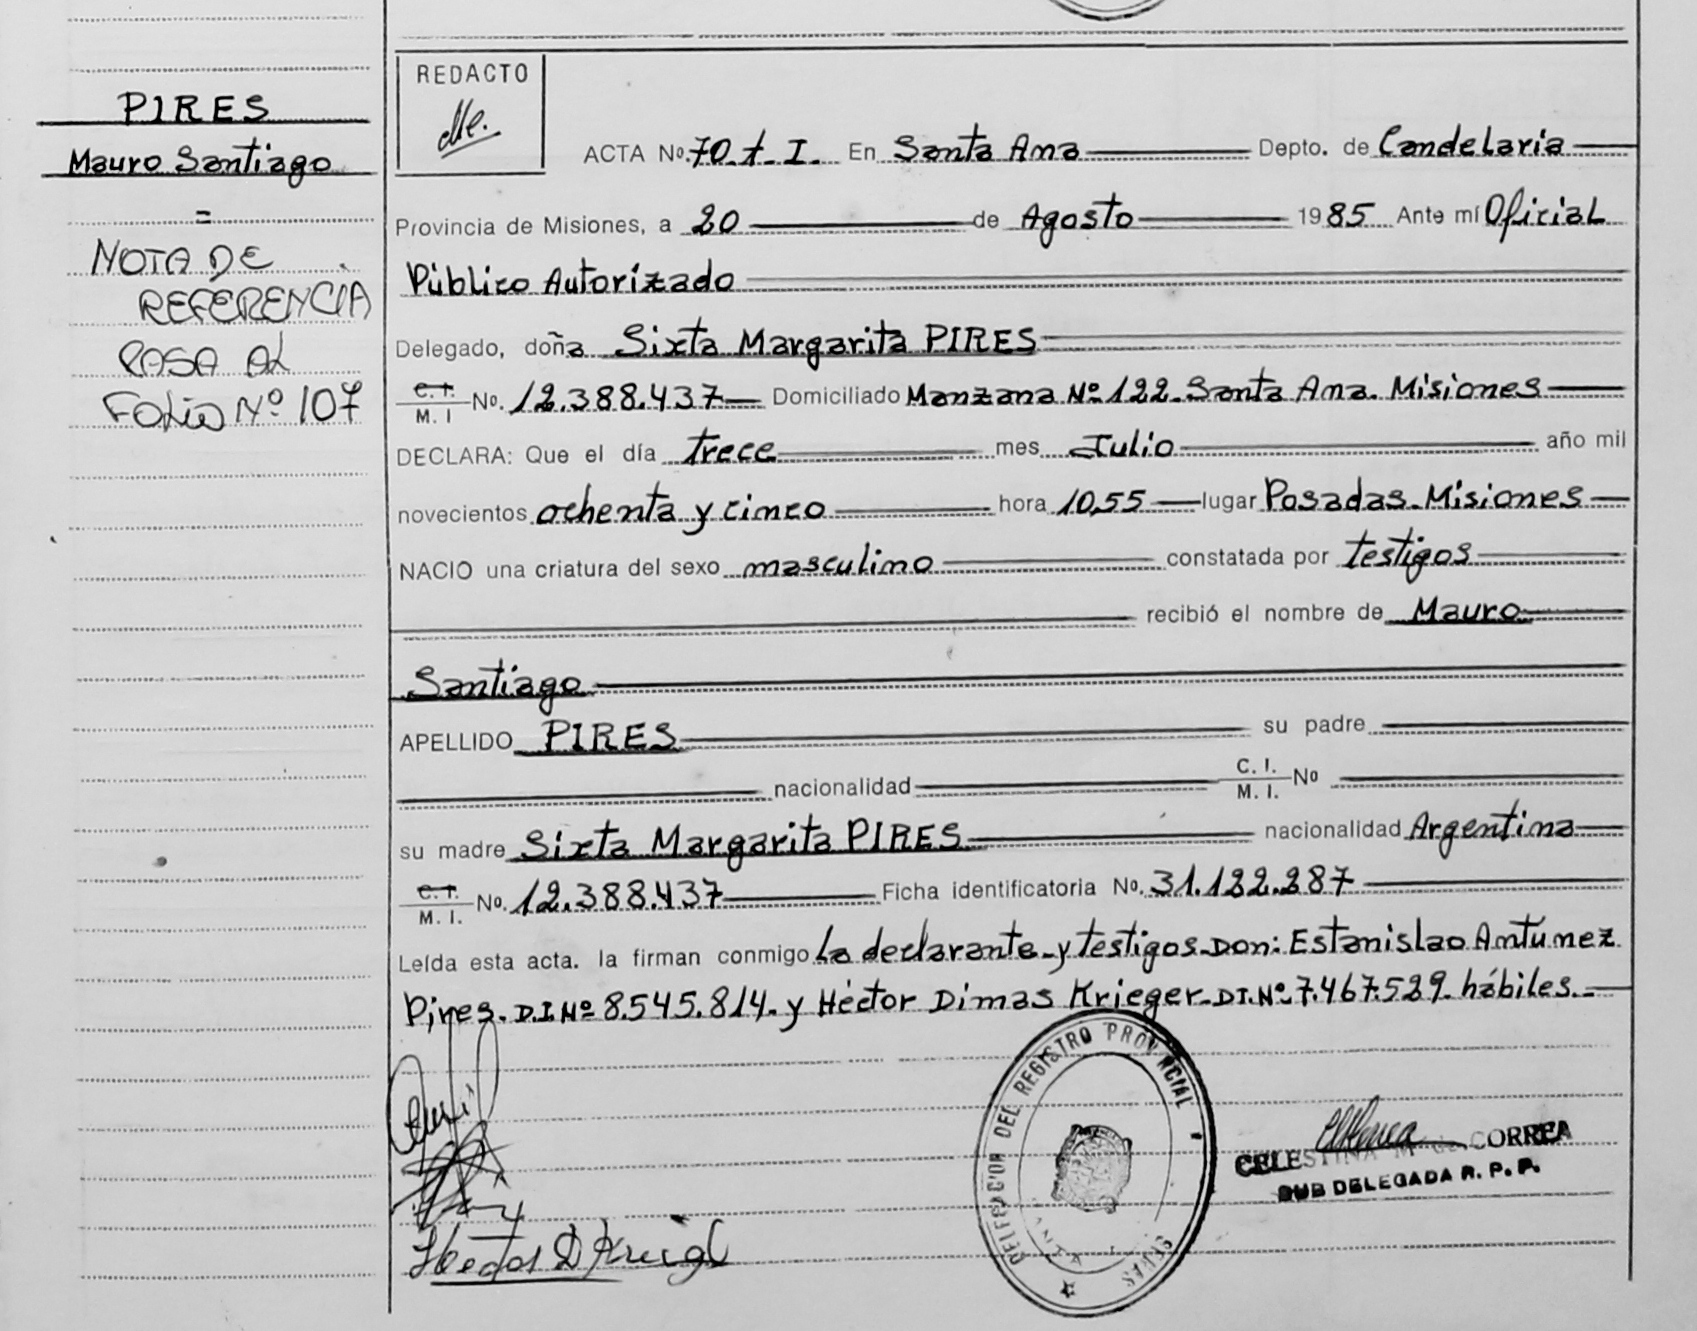 PIRES
Mauro Santiago
=
NOTA DE
REFERENCIA
PASA AL
FOLIO Nº 107
REDACTO
ACTA Nº. 70. t. I. En Santa Ana Depto. de Candelaria
Provincia de Misiones, a 20 de Agosto 1985 Ante mí Oficial
Público Autorizado
Delegado, doña Sixta Margarita PIRES
C. I. M. I No. 12.388.437 Domiciliado Manzana Nº 122. Santa Ana. Misiones
DECLARA: Que el día trece mes Julio año mil
novecientos ochenta y cinco hora 10,55 lugar Posadas. Misiones
NACIO una criatura del sexo masculino constatada por testigos
recibió el nombre de Mauro
Santiago
APELLIDO PIRES su padre
nacionalidad C. I. M. I. No
su madre Sixta Margarita PIRES nacionalidad Argentina
C. I. M. I. No. 12.388.437 Ficha identificatoria No. 31.122.287
Leída esta acta. la firman conmigo la declarante y testigos Don: Estanislao Antunez
Pires. D.I.Nº 8.545.814. y Héctor Dimas Krieger. DI.Nº 7.467.529. hábiles.
DELEGACION DEL REGISTRO PROVINCIAL
CELESTINA M. de CORREA
SUB DELEGADA R. P. P.